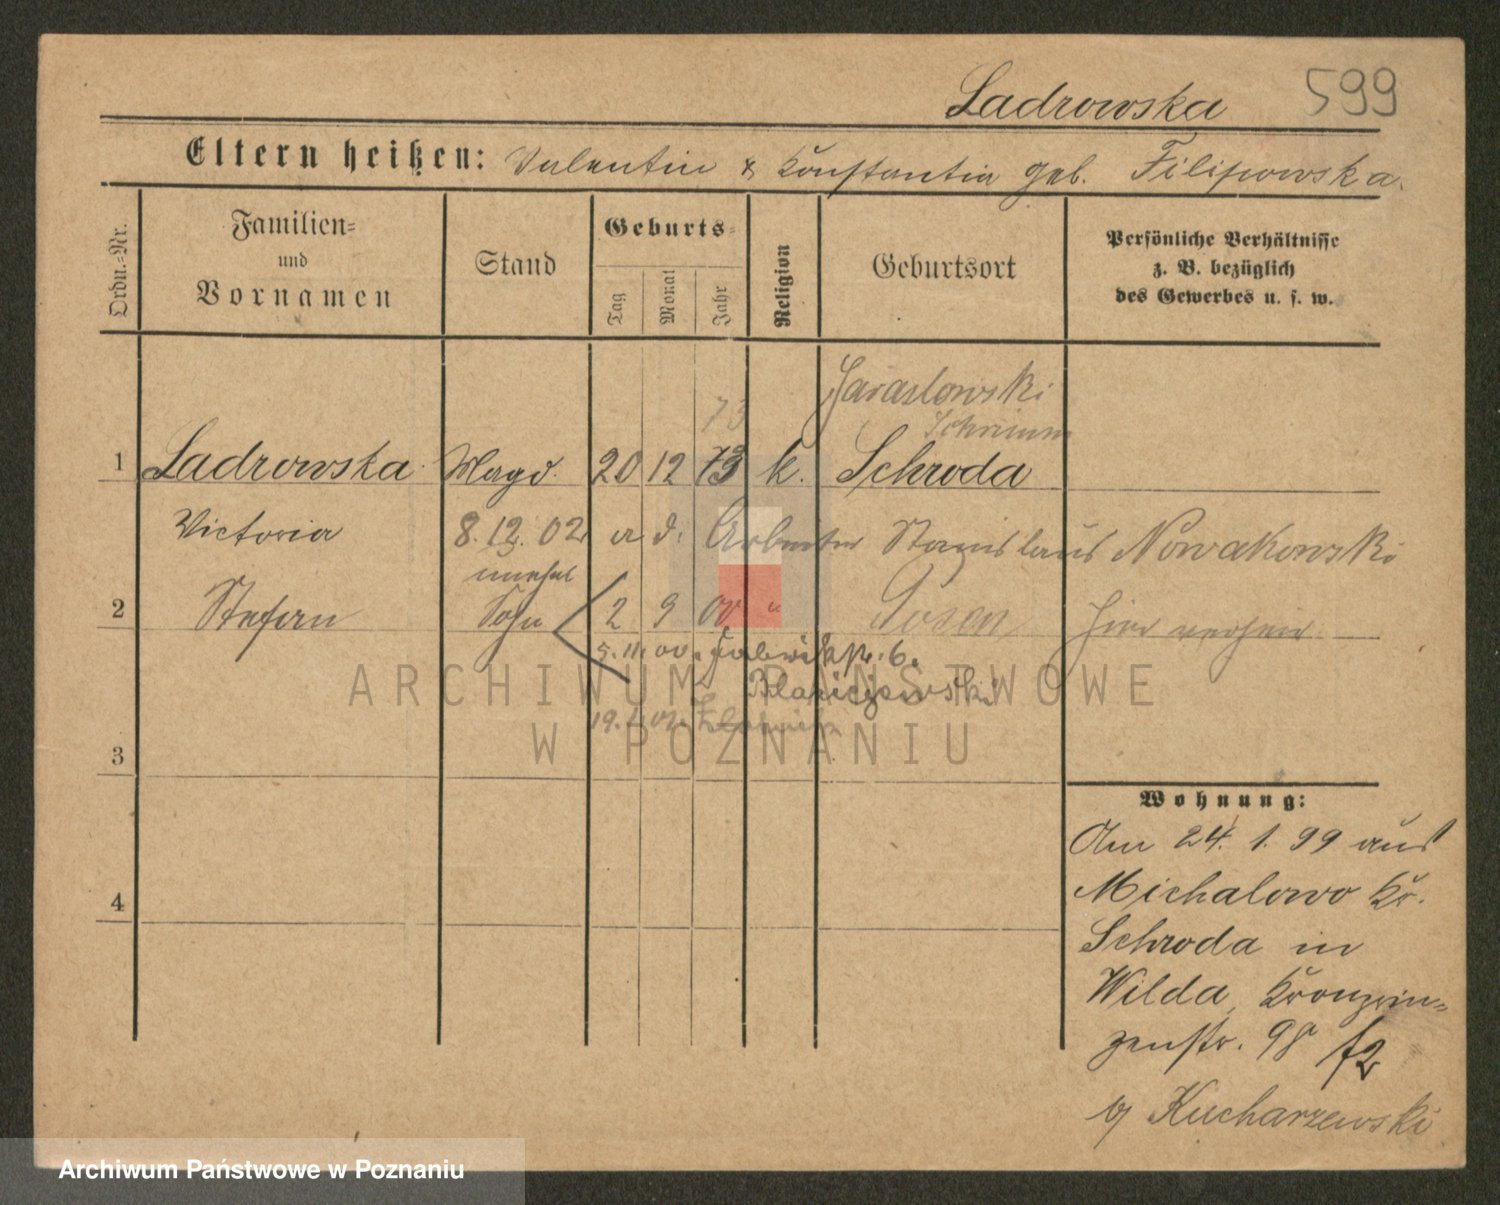 Ladrowska 599
Eltern heißen: Valentin & Konstantia geb. Filipowska.
Ordn.-Nr.
Familien-
und
Vornamen
Stand
Geburts-
Tag
Monat
Jahr
Religion
Geburtsort
Persönliche Verhältnisse
z. B. bezüglich
des Gewerbes u. s. w.
73
Schrimm
1 Ladrowska Magd. 20 12 73 k. Schroda
Victoria 8.12.02 a d. Arbeiter Stanislaus Nowakowski
unehel
2 Stefan Sohn 2 9 00 " Posen
5.11.00. 6.
19.
3
4
Wohnung:
Am 24. 1. 99 aus
Michalowo Kr.
Schroda in
Wilda, Kronprin-
zenstr. 98
b/ Kucharzewski
ARCHIWUM PAŃSTWOWE
W POZNANIU
Archiwum Państwowe w Poznaniu